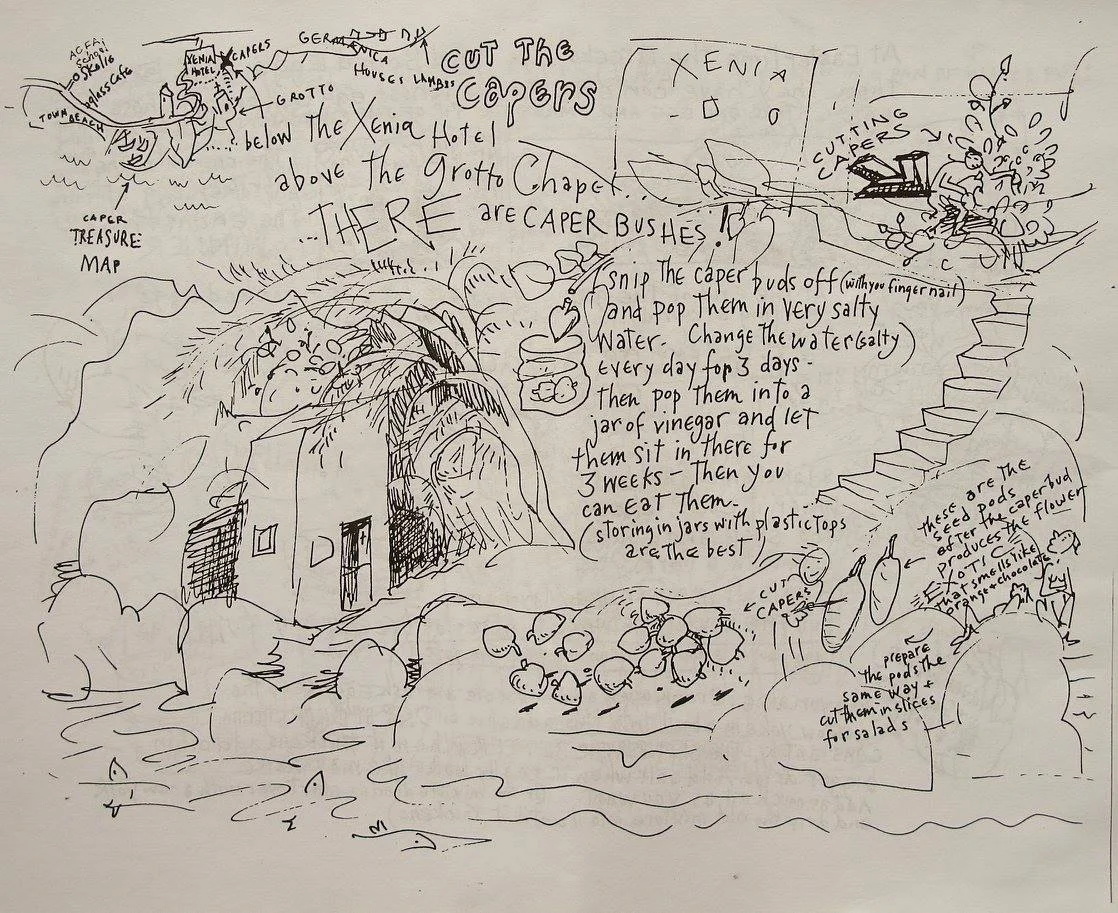 CUT THE
CAPERS
below The Xenia Hotel
above The Grotto Chapel
...THERE are CAPER BUSHES!
AGFAi
School
Skolio
glass Cafe
TOWN BEACH
XENIA
HOTEL
CAPERS
GROTTO
GERMANICA
HOUSES LAMBIS
CAPER
TREASURE
MAP
XENIA
CUTTING
CAPERS
snip The caper buds off (with you finger nail)
and pop Them in very salty
water. Change The water (salty)
every day for 3 days -
then pop them into a
jar of vinegar and let
them sit in there for
3 weeks - Then you
can eat Them.
(storing in jars with plastic tops
are The best)
CUT
CAPERS
These are The
seed pods
after the caper bud
produces The flower
EXOTIC
that smells like
orange + chocolate
prepare
the pods The
same way +
cut them in slices
for salads